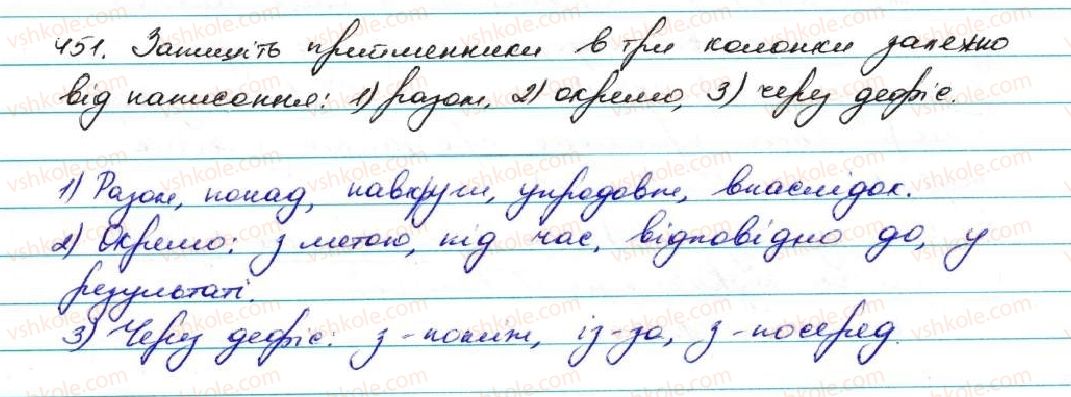 451. Запишіть прийменники в три колонки залежно
від написання: 1) разом, 2) окремо, 3) через дефіс.
1) Разом, понад, навкруги, упродовж, внаслідок.
2) Окремо: з метою, під час, відповідно до, у
результаті.
3) Через дефіс: з-поміж, із-за, з-посеред.